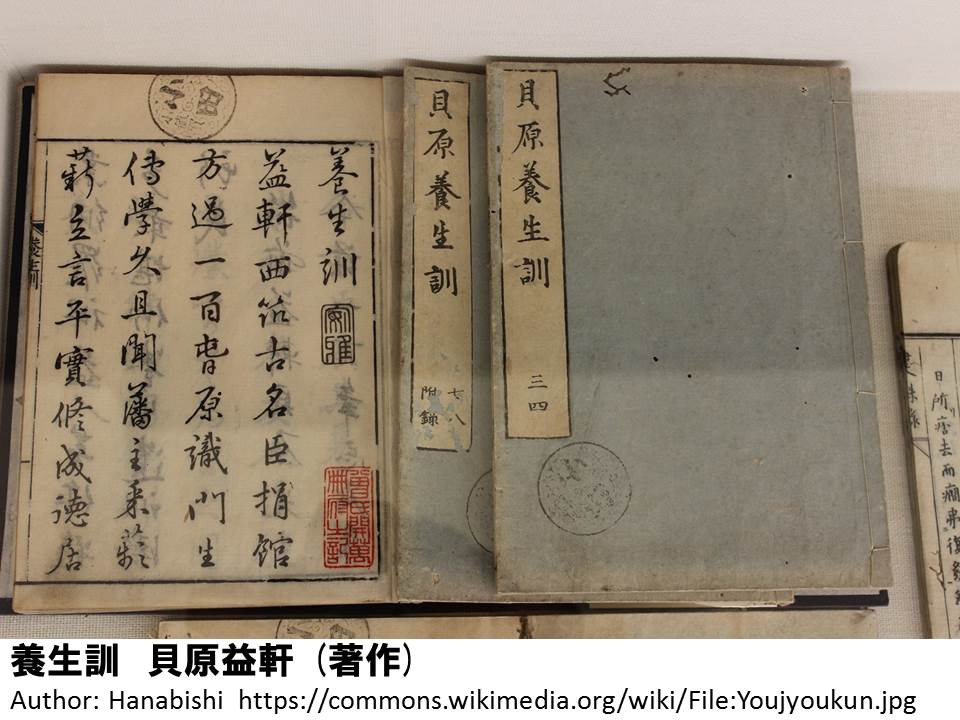 養生訓
益軒西筑古名臣捐館
方過一百原識門生
傳學久且聞藩主
薪立言平實脩成德居
養生訓
貝原養生訓
七八
附錄
貝原養生訓
三四
養生訓 貝原益軒（著作）
Author: Hanabishi https://commons.wikimedia.org/wiki/File:Youjyoukun.jpg